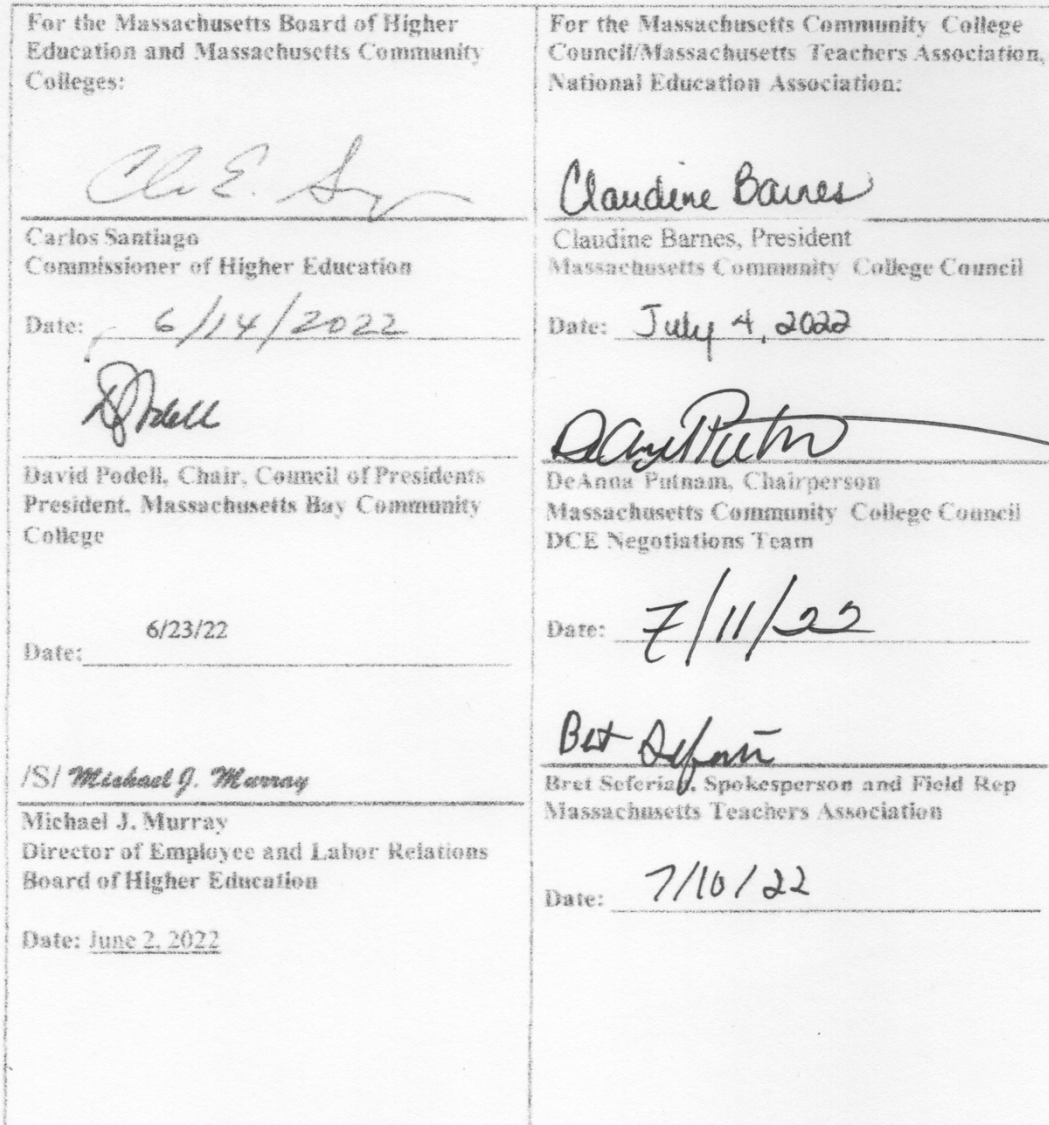 For the Massachusetts Board of Higher
Education and Massachusetts Community
Colleges:
Carlos Santiago
Commissioner of Higher Education
Date: 6/14/2022
David Podell, Chair, Council of Presidents
President, Massachusetts Bay Community
College
6/23/22
Date:
/S/ Michael J. Murray
Michael J. Murray
Director of Employee and Labor Relations
Board of Higher Education
Date: June 2, 2022
For the Massachusetts Community College
Council/Massachusetts Teachers Association,
National Education Association:
Claudine Barnes
Claudine Barnes, President
Massachusetts Community College Council
Date: July 4, 2022
DeAnna Putnam, Chairperson
Massachusetts Community College Council
DCE Negotiations Team
Date: 7/11/22
Bret Seferian, Spokesperson and Field Rep
Massachusetts Teachers Association
Date: 7/10/22